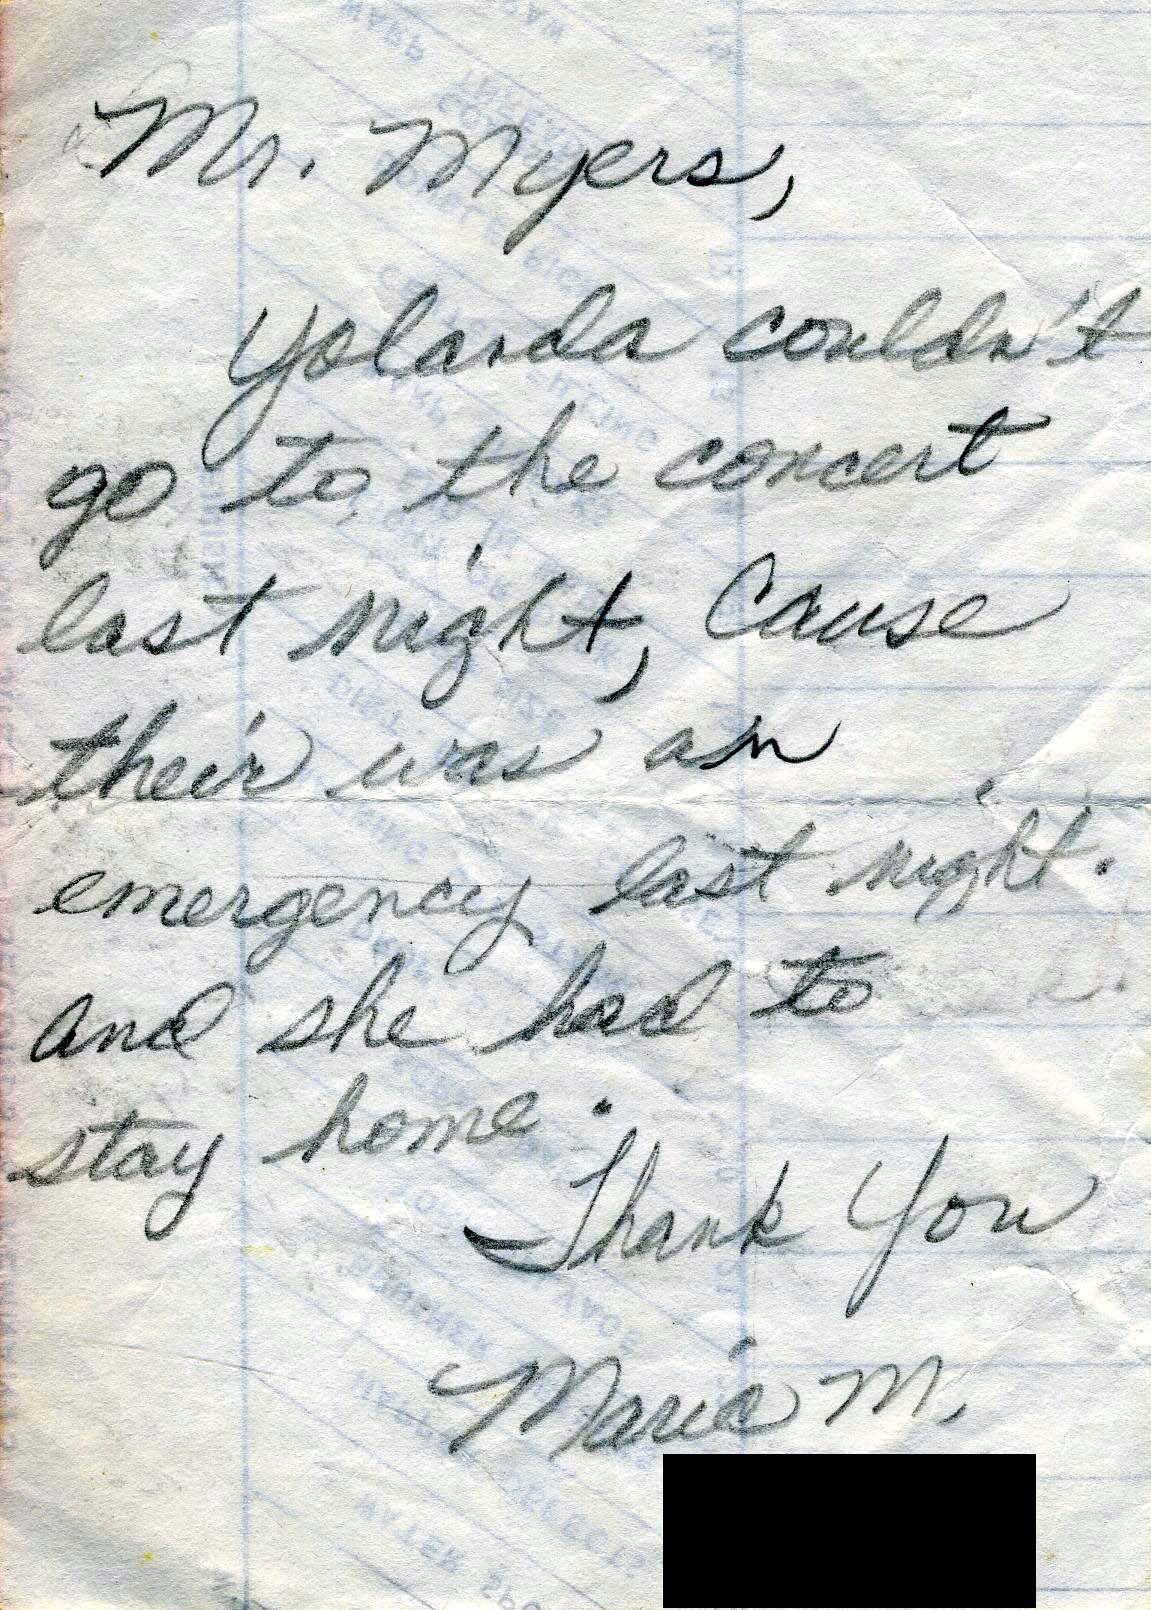 Mr. Myers,
Yolanda couldn't
go to the concert
last night, Cause
their was an
emergency last night.
and she had to
stay home.
Thank You
Maria M.